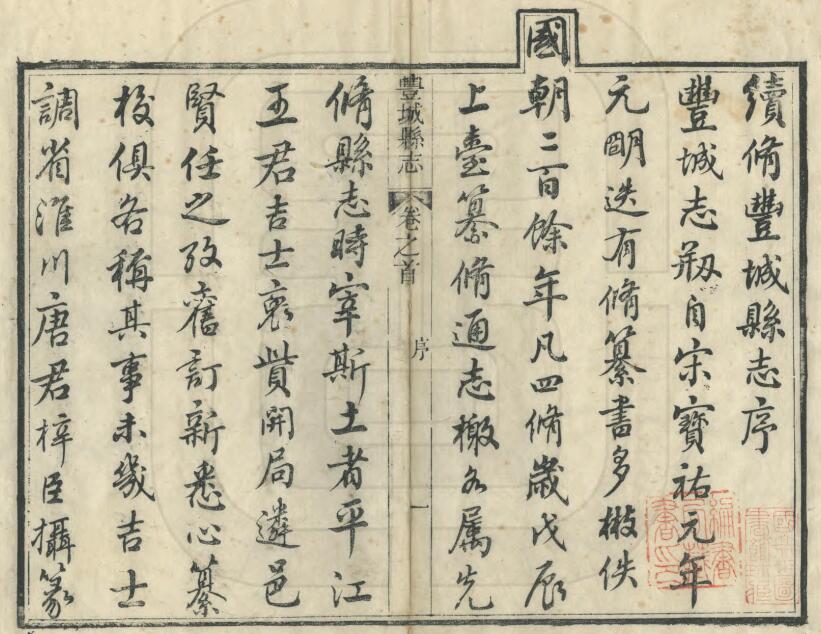 續脩豐城縣志序
豐城志剏自宋寶祐元年
元朙迭有脩纂書多散佚
國朝二百餘年凡四脩歲戊辰
上臺纂脩通志檄各属先
豐城縣志 卷之首 序 一
脩縣志時宰斯土者平江
王君吉士裒貲開局遴邑
賢任之攷舊訂新悉心纂
校俱各稱其事未幾吉士
調省淮川唐君梓臣攝篆